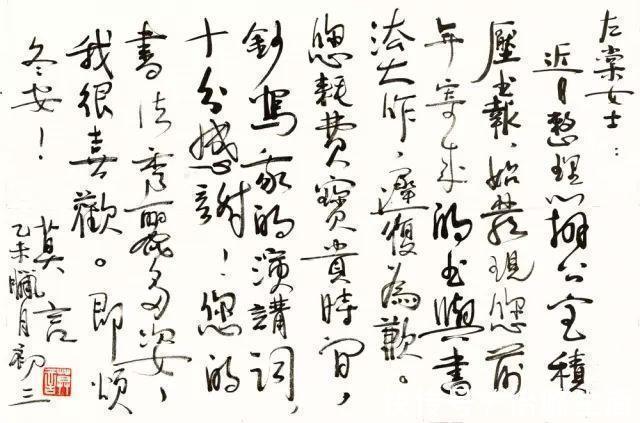 左棠女士：
近日整理辦公室積
壓书報，始發現您前
年寄來的书與書
法大作，遲復為歉。
您耗費寶貴時间，
鈔寫我的演講詞，
十分感謝！您的
書法秀麗多姿，
我很喜歡。即頌
冬安！
莫言
乙未臘月初三